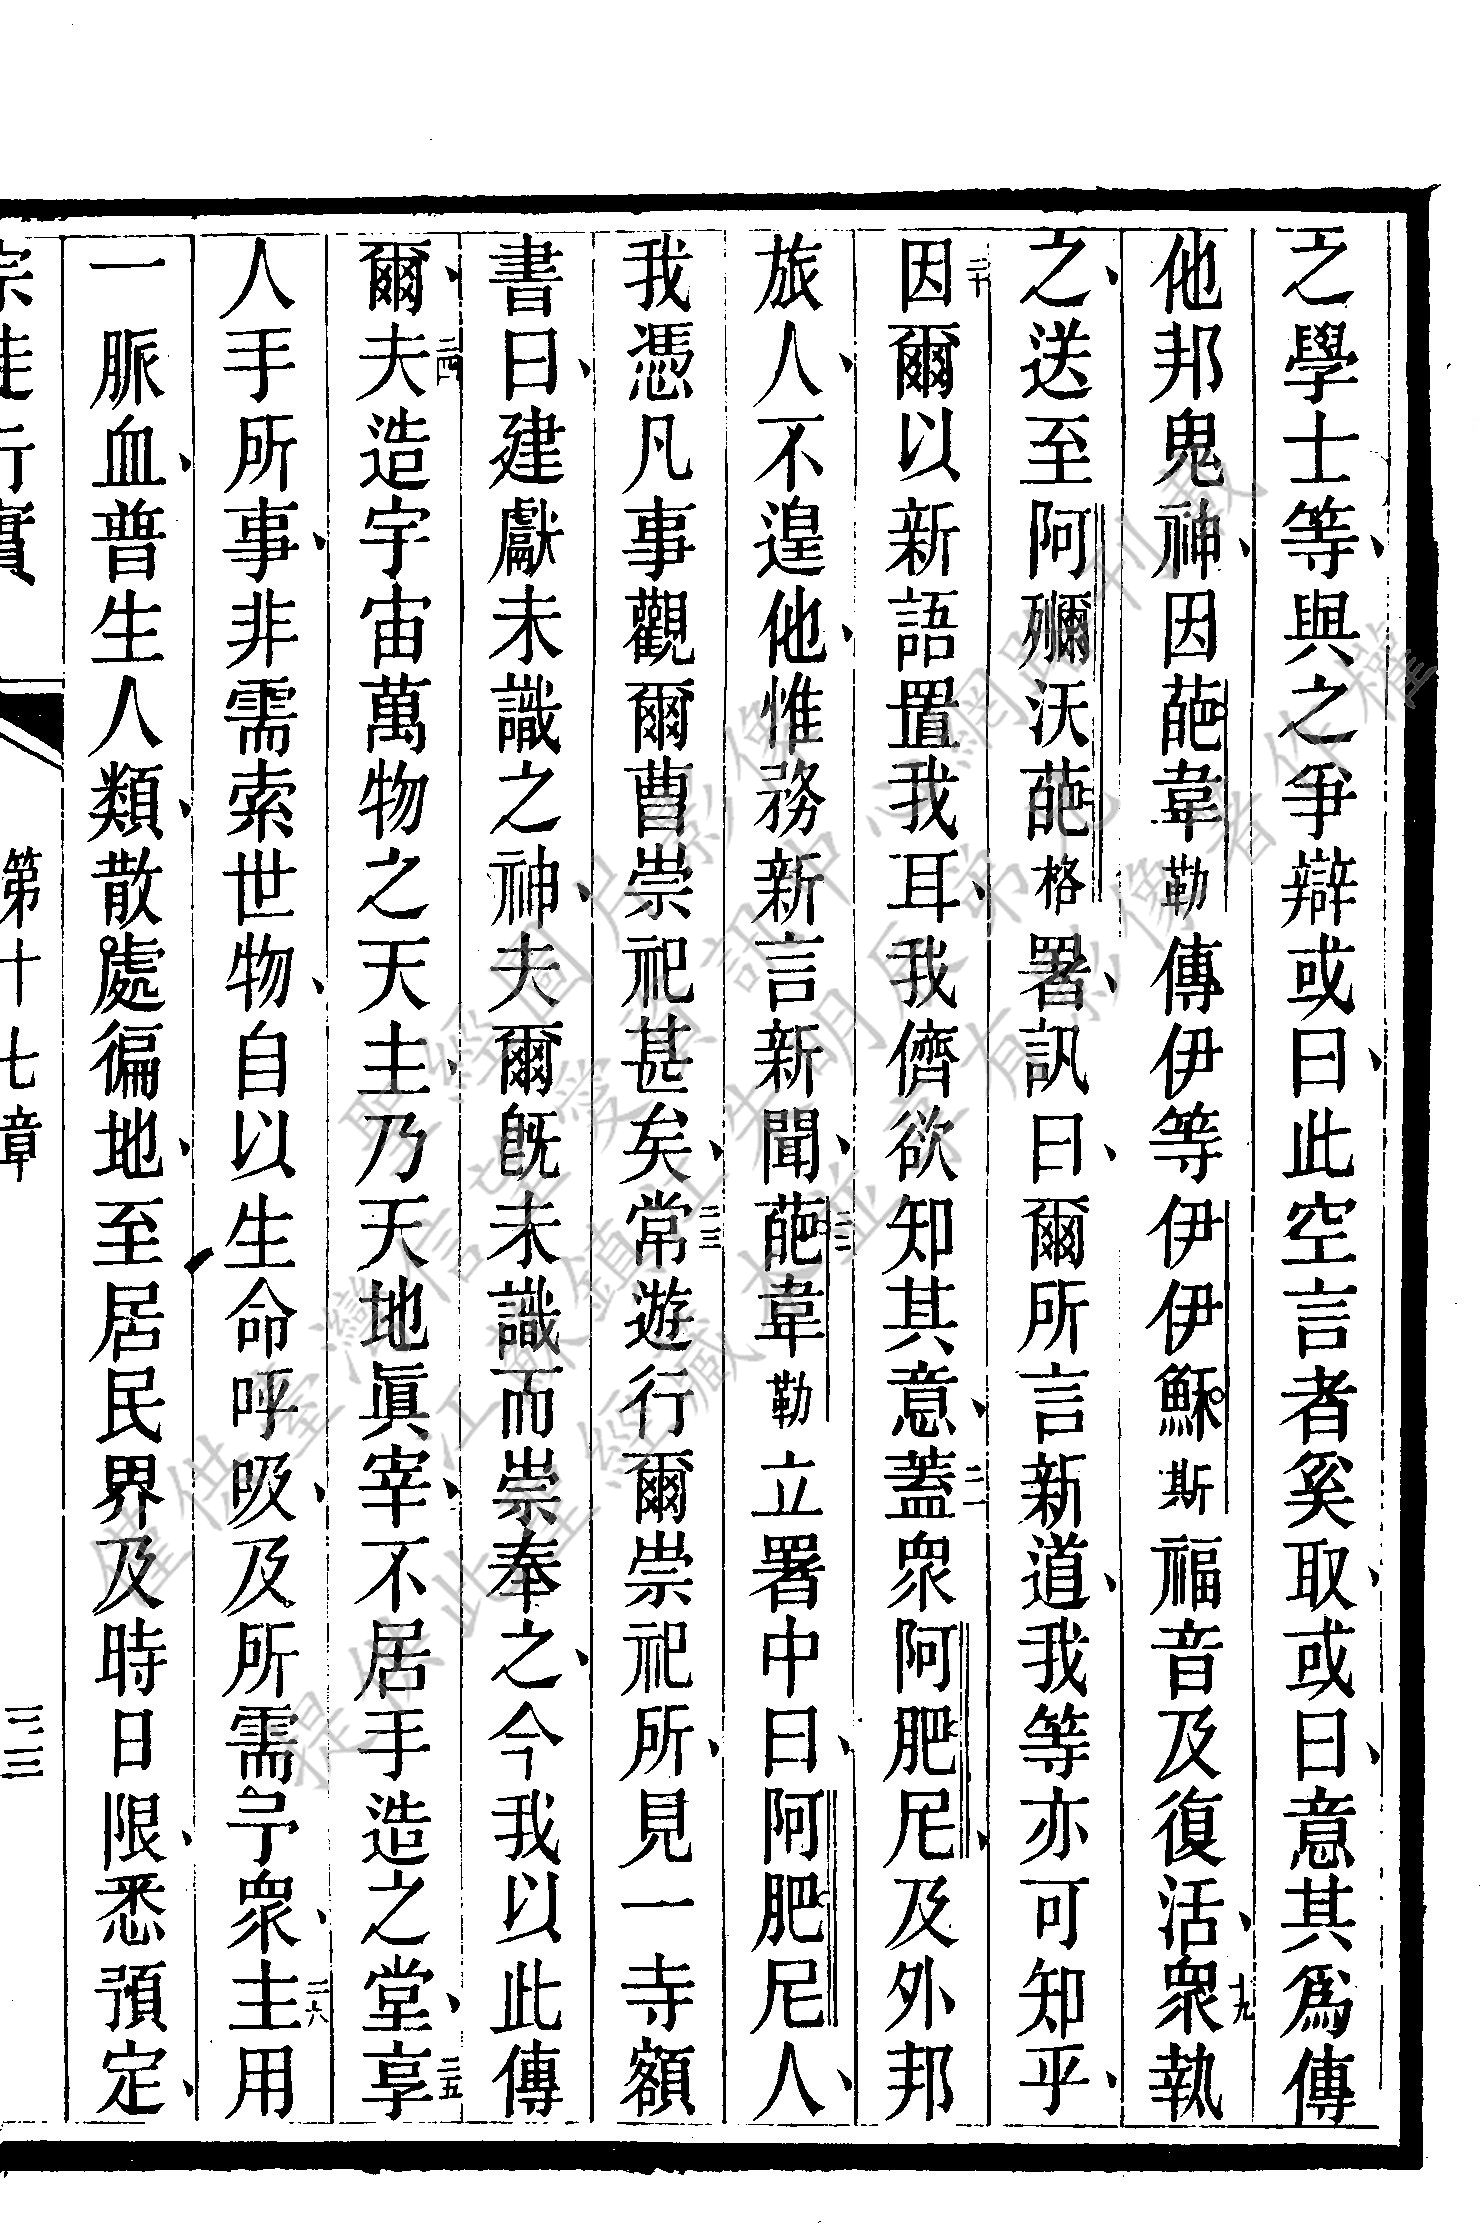 之學士等、與之爭辯或曰、此空言者奚取、或曰、意其為傳
他邦鬼神、因葩韋勒傳伊等伊伊穌斯福音及復活、十九眾執
之、送至阿殢沃葩格署、訊曰、爾所言新道、我等亦可知乎、
二十因爾以新語置我耳、我儕欲知其意、二一蓋眾阿肥尼、及外邦
旅人、不遑他、惟務新言新聞、二二葩韋勒立署中曰、阿肥尼人、
我憑凡事觀爾曹崇祀甚矣、二三常遊行爾崇祀所、見一寺額
書曰、建獻未識之神、夫爾旣未識而崇奉之、今我以此傳
爾、二四夫造宇宙萬物之天主、乃天地眞宰、不居手造之堂、二五享
人手所事、非需索世物、自以生命呼吸、及所需予眾、二六主用
一脈血、普生人類、散處徧地、至居民界及時日限、悉預定、
宗徒行實 第十七章 三三